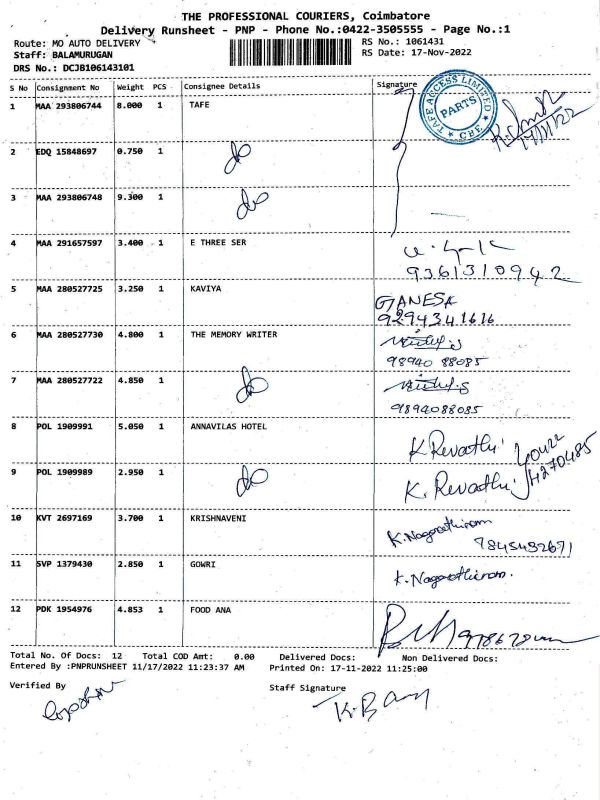 THE PROFESSIONAL COURIERS, Coimbatore
Delivery Runsheet - PNP - Phone No.:0422-3505555 - Page No.:1
Route: MO AUTO DELIVERY RS No.: 1061431
Staff: BALAMURUGAN RS Date: 17-Nov-2022
DRS No.: DCJB106143101
S No Consignment No Weight PCS Consignee Details Signature
TAFE ACCESS LIMITED
PARTS
CBE
1 MAA 293806744 8.000 1 TAFE
2 EDQ 15848697 0.750 1 do
3 MAA 293806748 9.300 1 do
4 MAA 291657597 3.400 1 E THREE SER
9361310942
5 MAA 280527725 3.250 1 KAVIYA GANESA
9294341616
6 MAA 280527730 4.800 1 THE MEMORY WRITER
98940 88085
7 MAA 280527722 4.850 1 do
9894088085
8 POL 1909991 5.050 1 ANNAVILAS HOTEL K Revathi
9 POL 1909989 2.950 1 do K. Revathi
10 KVT 2697169 3.700 1 KRISHNAVENI K.Nagarathinam
9845492671
11 SVP 1379430 2.850 1 GOWRI K.Nagarathinam.
12 PDK 1954976 4.853 1 FOOD ANA
Total No. Of Docs: 12 Total COD Amt: 0.00 Delivered Docs: Non Delivered Docs:
Entered By :PNPRUNSHEET 11/17/2022 11:23:37 AM Printed On: 17-11-2022 11:25:00
Verified By Staff Signature